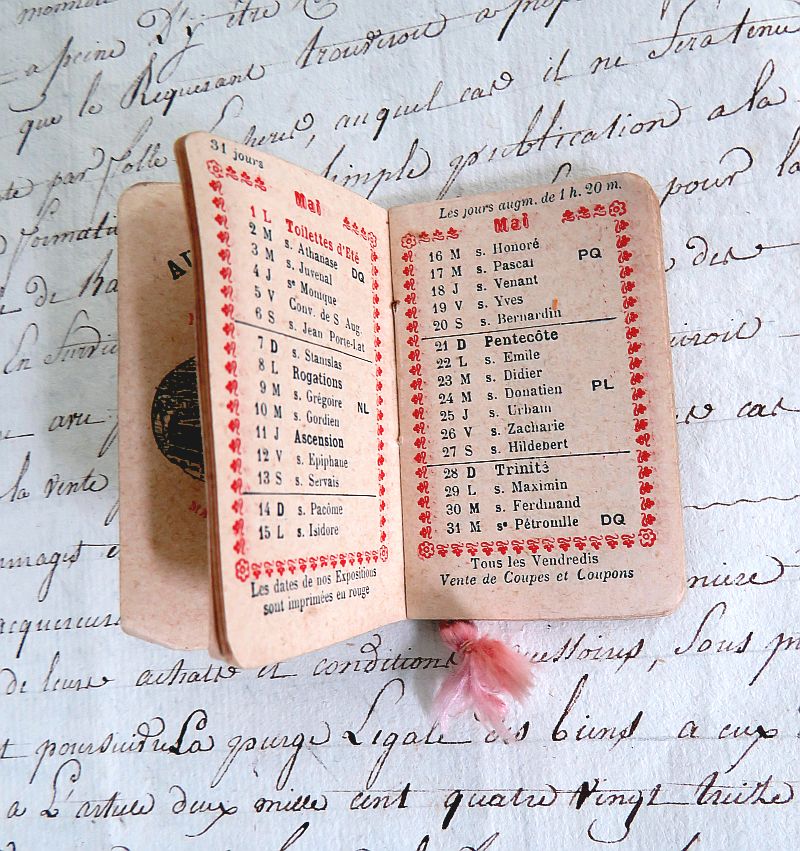 a peine D'y être
que le Requerant trouveroit a
auquel cas il ne sera tenu
simple publication a la
pour la
31 jours
Mai
1 L Toilettes d'Eté
2 M s. Athanase DQ
3 M s. Juvenal
4 J se Monique
5 V Conv. de S Aug.
6 S s. Jean Porte-Lat
7 D s. Stanislas
8 L Rogations
9 M s. Grégoire NL
10 M s. Gordien
11 J Ascension
12 V s. Epiphane
13 S s. Servais
14 D s. Pacôme
15 L s. Isidore
Les dates de nos Expositions
sont imprimées en rouge
Les jours augm. de 1 h. 20 m.
Mai
16 M s. Honoré PQ
17 M s. Pascal
18 J s. Venant
19 V s. Yves
20 S s. Bernardin
21 D Pentecôte
22 L s. Emile
23 M s. Didier
24 M s. Donatien PL
25 J s. Urbain
26 V s. Zacharie
27 S s. Hildebert
28 D Trinité
29 L s. Maximin
30 M s. Ferdinand
31 M se Pétronille DQ
Tous les Vendredis
Vente de Coupes et Coupons
AU
des
cas
la vente
de leurs achats et conditions Sous
poursuivre La purge Legale des biens a eux
a L'article deux mille cent quatre Vingt treize